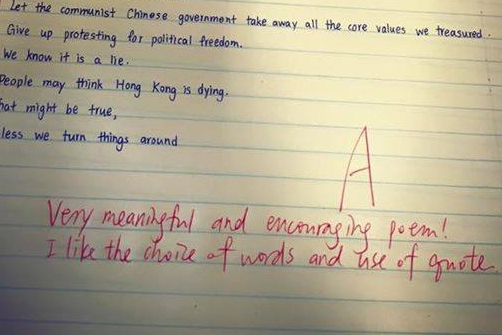 Let the communist Chinese government take away all the core values we treasured.
Give up protesting for political freedom.
We know it is a lie.
People may think Hong Kong is dying.
hat might be true,
less we turn things around
A
Very meaningful and encouraging poem!
I like the choice of words and use of quote.